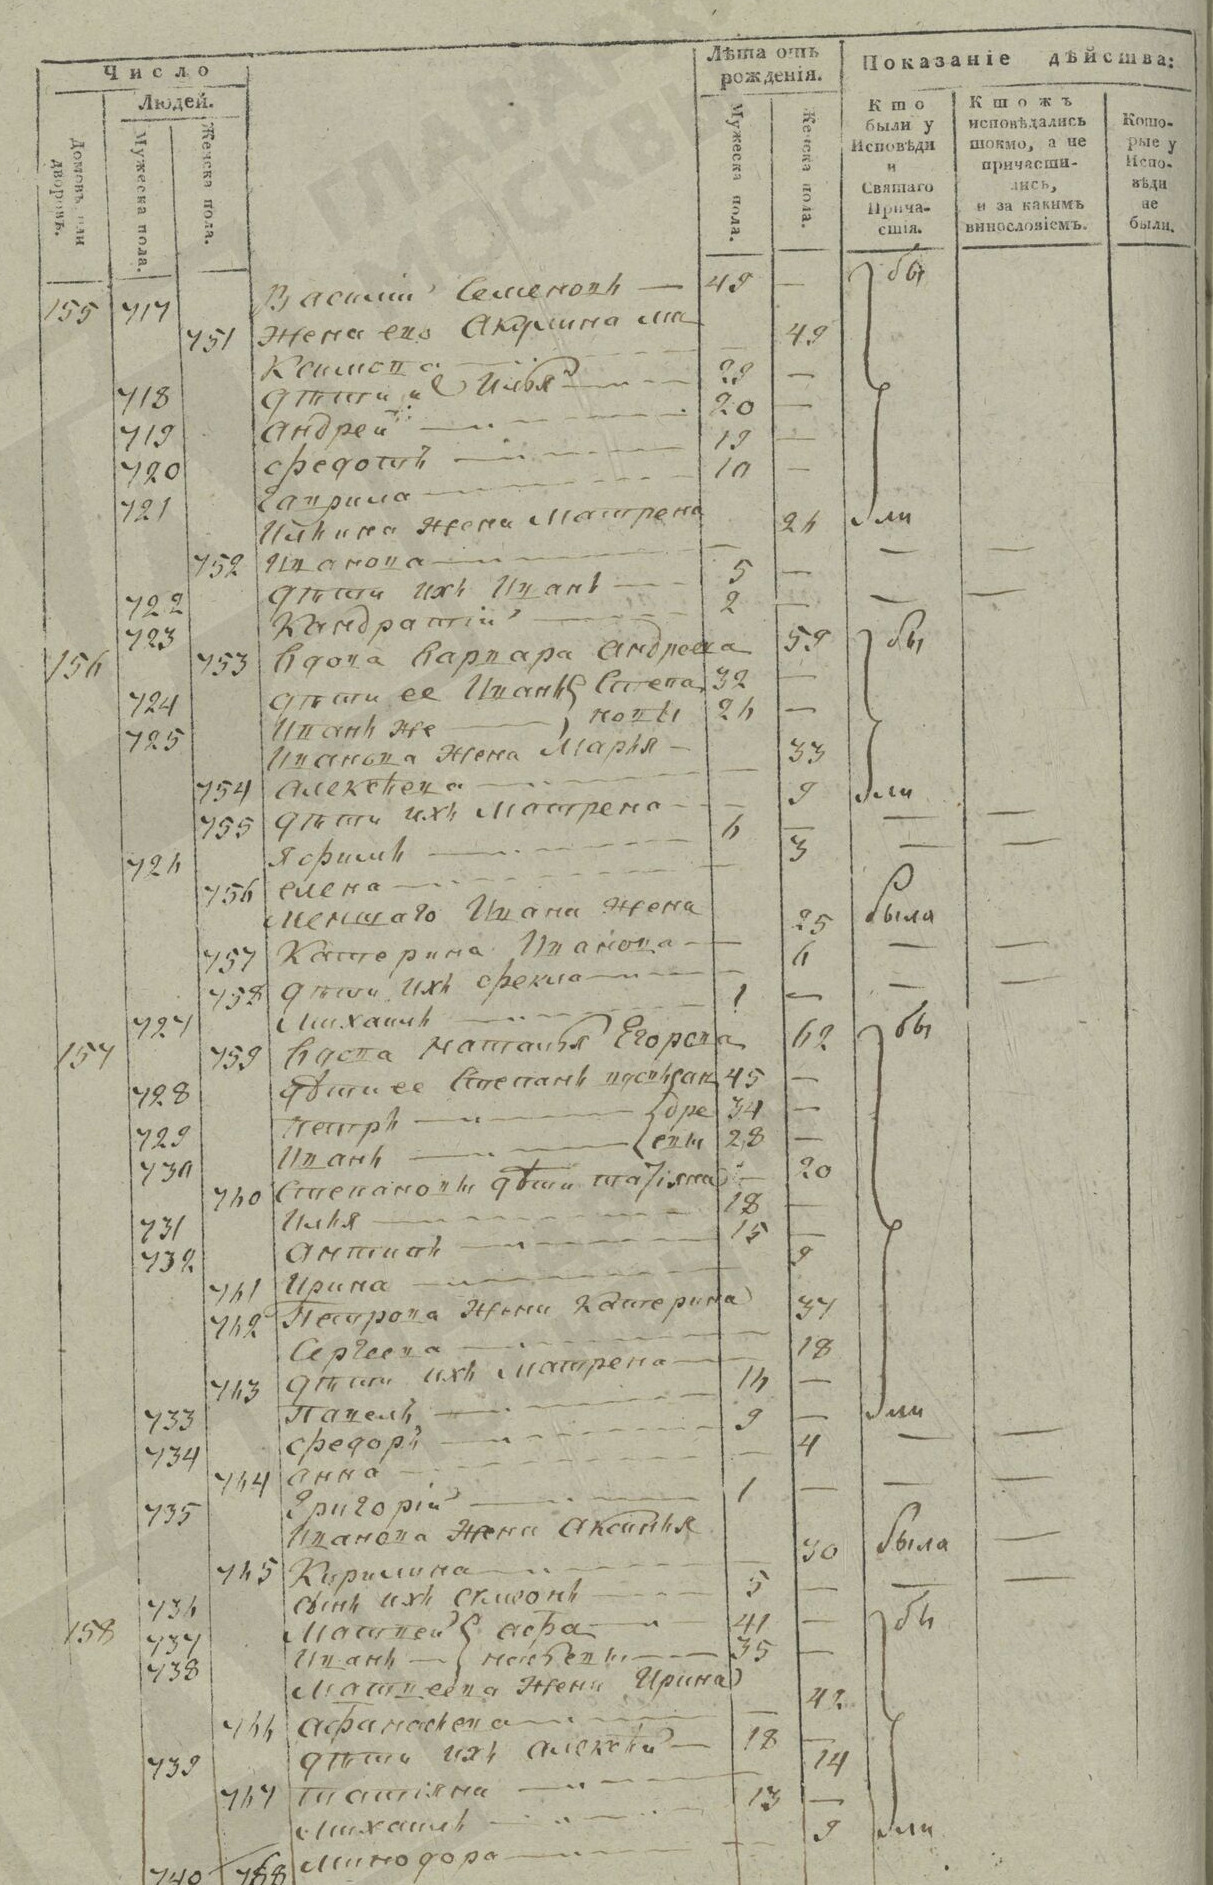 Число
Людей.
Домовъ или дворовъ.
Мужеска пола.
Женска пола.
Лѣта отъ рожденія.
Мужеска пола.
Женска пола.
Показаніе дѣйства:
Кто были у Исповѣди и Святаго Причастія.
Ктожъ исповѣдались токмо, а не причастились, и за какимъ винословіемъ.
Которые у Исповѣди не были.
155 717 Василій Семеновъ — 49 — бы
751 Жена его Акулина 49
718 дѣти Илья 29 —
719 Андрей 20 —
720 Федотъ 19 —
721 Гаврила 10 —
Ильина жена Матрена 26 ли
752 Иванова — —
722 дѣти ихъ Иванъ 5 — — —
723 Кандратій 2 —
156 753 вдова Варвара Андреева 59 бы
724 дѣти ее Иванъ Степа 32 —
725 Иванъ же новы 26 —
Иванова жена Марья — 33
754 Алексѣева
755 дѣти ихъ Матрена 9 ли
726 Ефимъ 6 — — —
756 Елена 3 — —
Меншаго Ивана жена 25 была
757 Катерина Иванова
758 дѣти ихъ Фекла 6 — —
727 Михаилъ 1 — — —
157 759 вдова Наталья Егорова 62 бы
728 дѣти ее Степанъ вдовъ ан 45 —
729 Петръ дре 34 —
730 Иванъ евы 28 —
760 Степановы дѣти Татіяна 20
731 Илья 18 —
732 Антипъ 15 —
761 Ирина 9
762 Петрова жена Катерина 37
Сергеева
763 дѣти ихъ Матрена 18
733 Павелъ 16 —
734 Федоръ 9 — ли
764 Анна 4 — —
735 Григорій 1 — — —
Иванова жена Аксинья 30 была —
765 Кирилина
736 сынъ ихъ Симеонъ 5 — — —
158 737 Матвей Афа 41 — бы
738 Иванъ насьевы 35 —
Матвеева жена Ирина 42
766 Афанасьева
739 дѣти ихъ Алексѣй 18 —
767 Татіяна 14
740 Михаилъ 13 —
768 Минодора 9 ли